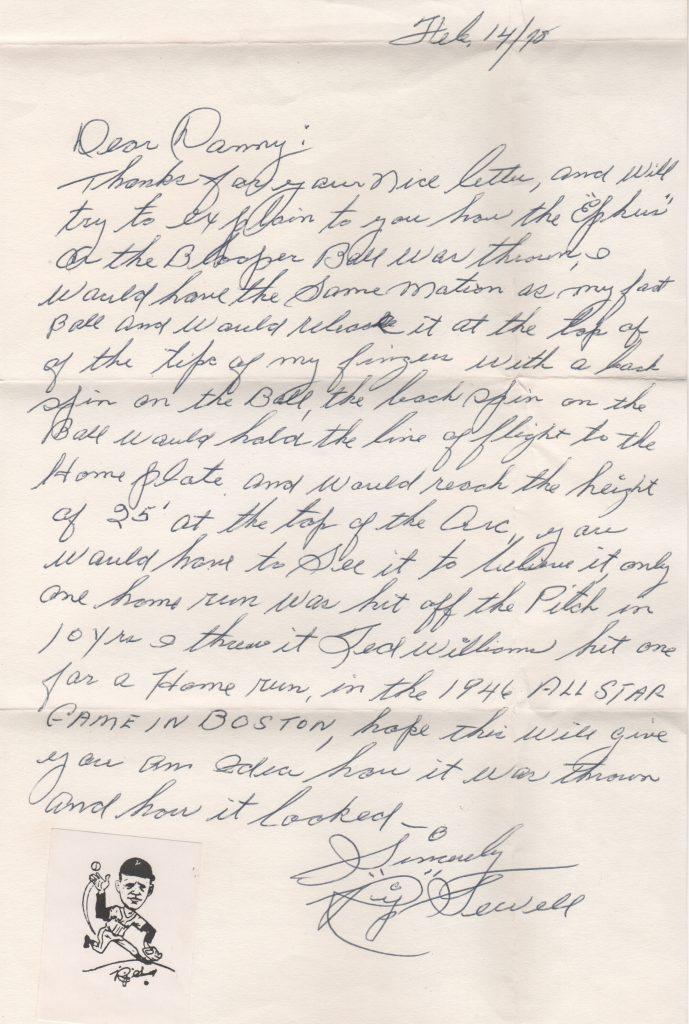 Feb, 14/75
Dear Danny:
Thanks for your nice letter, and will
try to explain to you how the "Ephus"
or the Blooper Ball was thrown, I
would have the same motion as my fast
Ball and would release it at the top of
of the tips of my fingers with a back
spin on the Ball, the back spin on the
Ball would hold the line of flight to the
Home plate and would reach the height
of 25' at the top of the arc, you
would have to see it to believe it, only
one home run was hit off the Pitch in
10 yrs I threw it Ted Williams hit one
for a Home run, in the 1946 ALL STAR
GAME IN BOSTON, hope this will give
you an Idea how it was thrown
and how it looked—
Sincerely
"Rip" Sewell